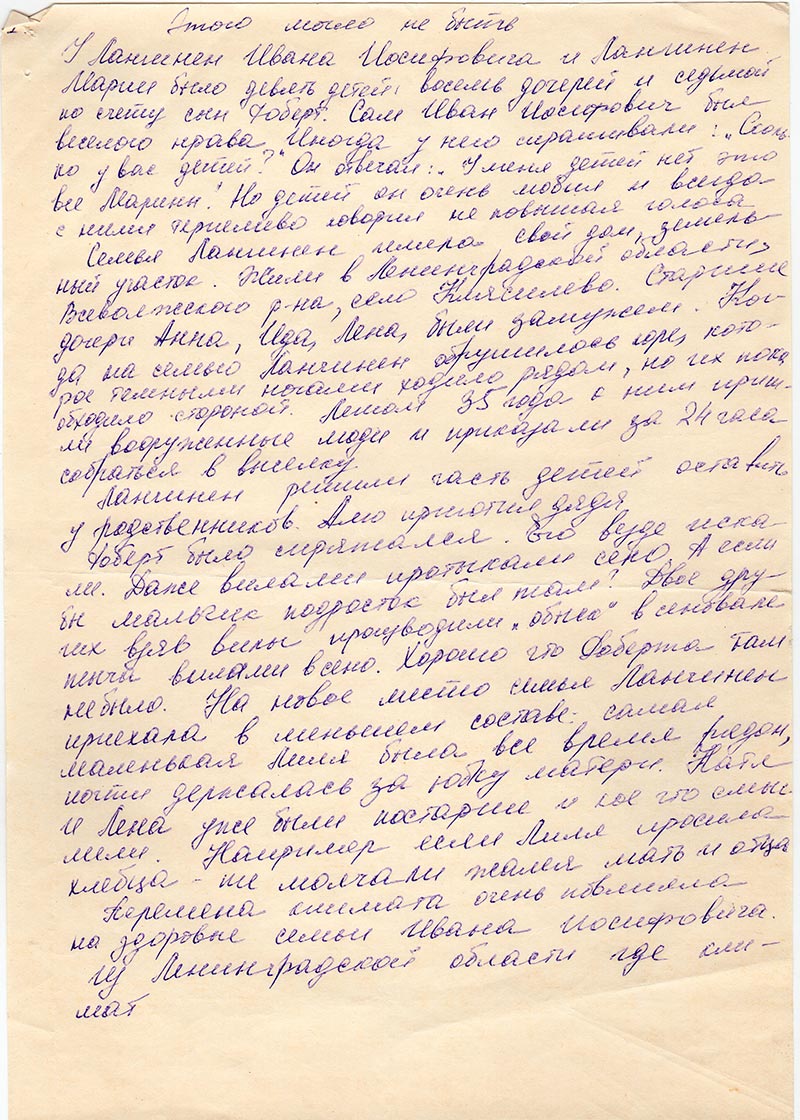 Этого могло не быть
У Ланчинен Ивана Иосифовича и Ланчинен
Марии было девять детей: восемь дочерей и седьмой
по счету сын Роберт. Сам Иван Иосифович был
веселого нрава. Иногда у него спрашивали: „Сколь-
ко у вас детей?" Он отвечал: „У меня детей нет это
все Марины." Но детей он очень любил и всегда
с ними терпеливо говорил не повышая голоса
Семья Ланчинен имела свой дом, земель-
ный участок. Жили в Ленинградской области,
Всеволжского р-на, село Старшие
дочери Анна, Ида, Лена, были замужем. Ког-
да на семью Ланчинен обрушилось горе, кото-
рое темными ночами ходило рядом, но их пока
обходило стороной. Летом 35 года к ним приш-
ли вооруженные люди и приказали за 24 часа
собраться в высылку.
Ланчинен решили часть детей оставить
у родственников. Алю приютил дядя
Роберт было спрятался. Его везде иска-
ли. Даже вилами протыкали сено. А если
бы мальчик подросток был там? Двое дру-
гих взяв вилы производили „обыск" в сеновале
тыча вилами в сено. Хорошо что Роберта там
не было. На новое место семья Ланчинен
приехала в меньшем составе: самая
маленькая Лиля была все время рядом,
почти держалась за юбку матери. Катя
и Лена уже были постарше и кое что смыс-
лили. Например если Лиля просила
хлебца - те молчали жалея мать и отца
Перемена климата очень повлияла
на здоровье семьи Ивана Иосифовича.
Из Ленинградской области где кли-
мат